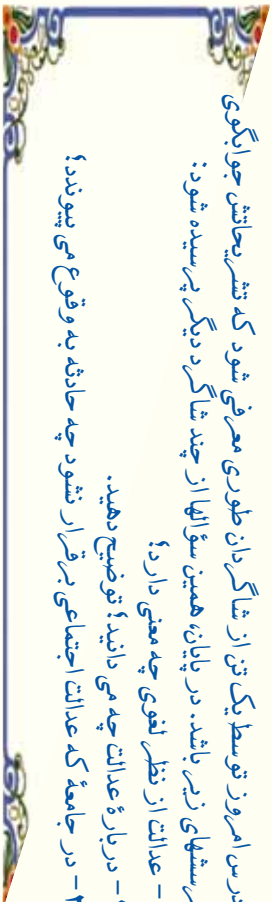 درس امروز توسط یک تن از شاگردان طوری معرفی شود که تشریحاتش جوابگوی
پرسشهای زیر باشد. در پایان، همین سؤالها از چند شاگرد دیگر پرسیده شود:
- عدالت از نظر لغوی چه معنی دارد؟
- دربارهٔ عدالت چه می دانید؟ توضیح دهید.
- در جامعهٔ که عدالت اجتماعی برقرار نشود چه حادثه به وقوع می پیوندد؟